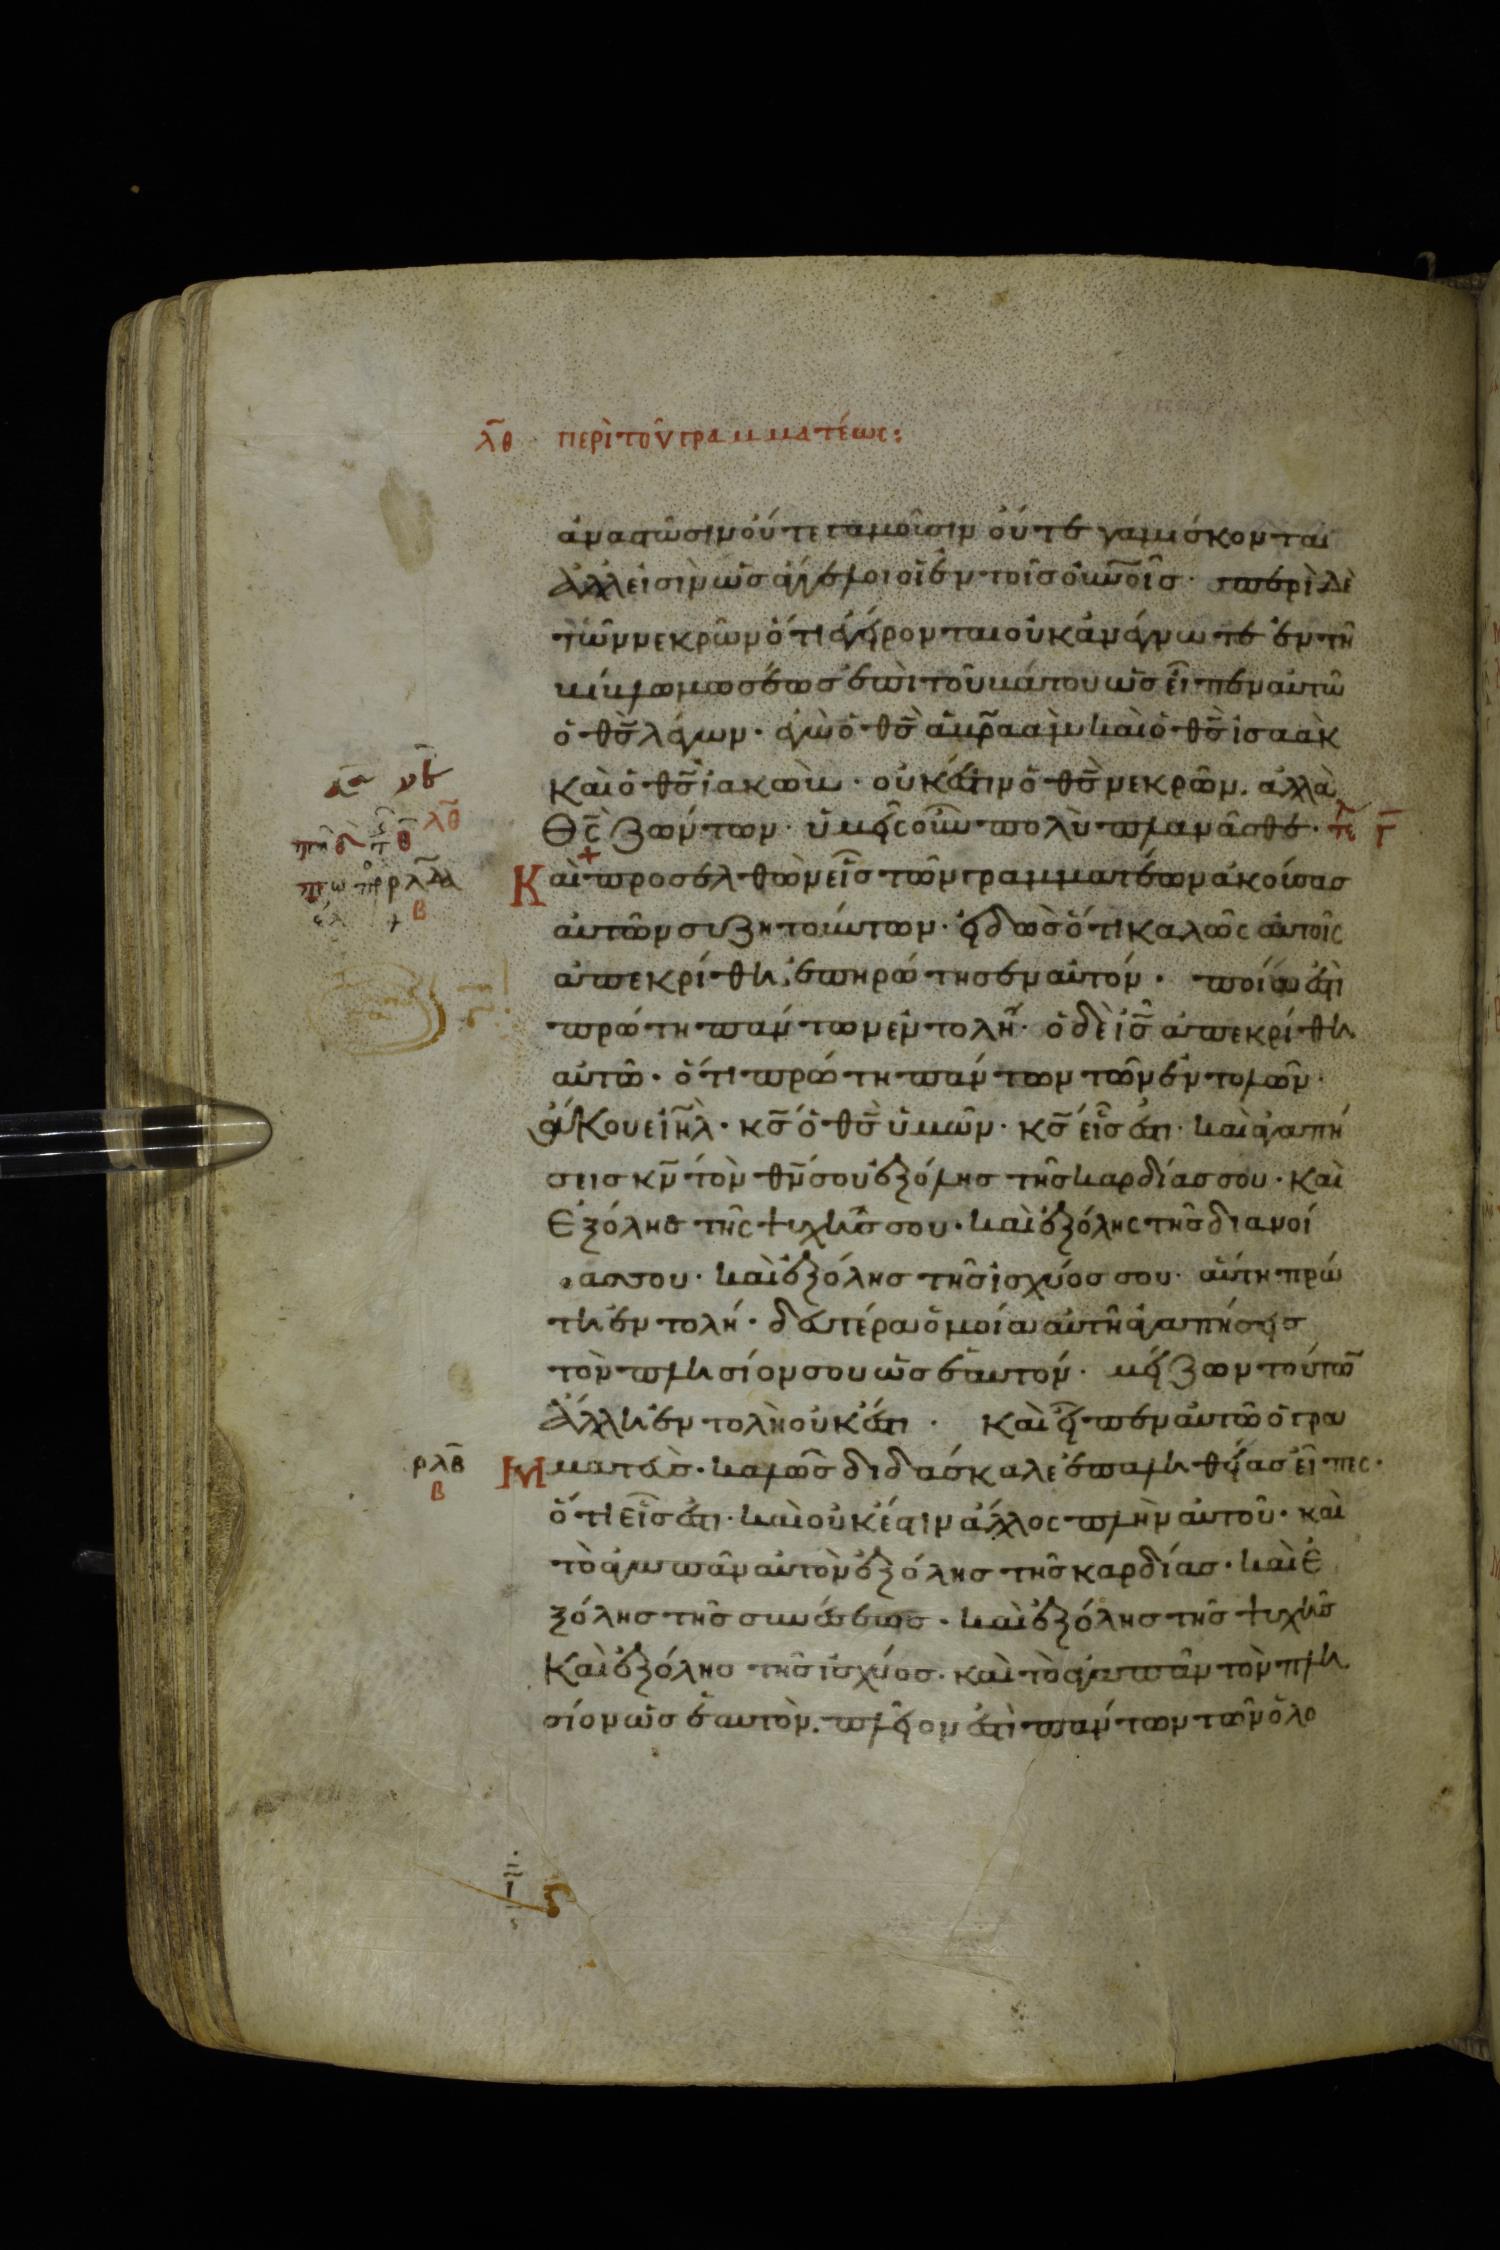 λθ περὶ τοῦ γραμματέως:
ἀναστῶσιν οὔτε γαμοῦσιν οὔτε γαμισκονται
Ἀλλ εἰσὶν ὡς ἄγγελοι οἱ ἐν τοῖς οὐνοῖς · περὶ δὲ
τῶν νεκρῶν ὅτι ἐγείρονται οὐκ ἀνέγνωτε ἐν τῆ
βίβλω μωσέως ἐπὶ τοῦ βάτου ὡς εἶπεν αυτῶ
ὁ θς λέγων · ἐγὼ ὁ θς ἀβρααμ καὶ ὁ θς ἰσαὰκ
Καὶ ὁ θς ἰακώβ · οὐκ ἔστιν ὁ θς νεκρῶν. ἀλλὰ
Θς ζώντων · ὑμεῖς οὖν πολὺ πλανᾶσθε · τε Γ
Καὶ προσελθὼν εἷς τῶν γραμματέων ἀκούσας
αυτῶν συζητούντων · εἰδὼς ὅτι καλῶς αὐτοῖς
ἀπεκρίθη, ἐπηρώτησεν αὐτόν · ποία ἐστὶ
πρώτη πάντων ἐντολή · ὁ δὲ ις ἀπεκρίθη
αὐτῶ · ὅτι πρώτη πάντων τῶν ἐντολῶν ·
ἄκουε ιηλ · κς ὁ θς ὑμῶν · κς εἷς ἐστι · καὶ ἀγαπή
σεις κν τὸν θν σου ἐξ ὅλης τῆς καρδίας σου · καὶ
Ἐξ ὅλης τῆς ψυχῆς σου · καὶ ἐξ ὅλης τῆς διανοί
ας σου · καὶ ἐξ ὅλης τῆς ἰσχύος σου · αὕτη πρώ
τη ἐντολή · δευτέρα ὁμοία αὐτῆ ἀγαπήσεις
τὸν πλησίον σου ὡς ἑαυτόν · μείζων τούτω
Ἄλλη ἐντολὴ οὐκ ἔστι · Καὶ εἶπεν αὐτῶ ὁ γρα
ρλβ Μματεὺς · καλῶς διδάσκαλε ἐπαληθείας εἶπες ·
β
ὅτι εἷς ἐστι · καὶ οὐκ έστιν ἄλλος πλὴν αὐτοῦ · καὶ
τὸ ἀγαπᾶν αὐτὸν ἐξ ὅλης τῆς καρδίας · καὶ ἐ
ξ όλης τῆς συνέσεως · καὶ ἐξ ὅλης τῆς ψυχῆς
Καὶ ἐξ ὅλης τῆς ἰσχύος · καὶ τὸ ἀγαπᾶν τὸν πλη
σίον ὡς ἑαυτὸν. πλεῖον ἐστὶ πάντων τῶν ὁλο